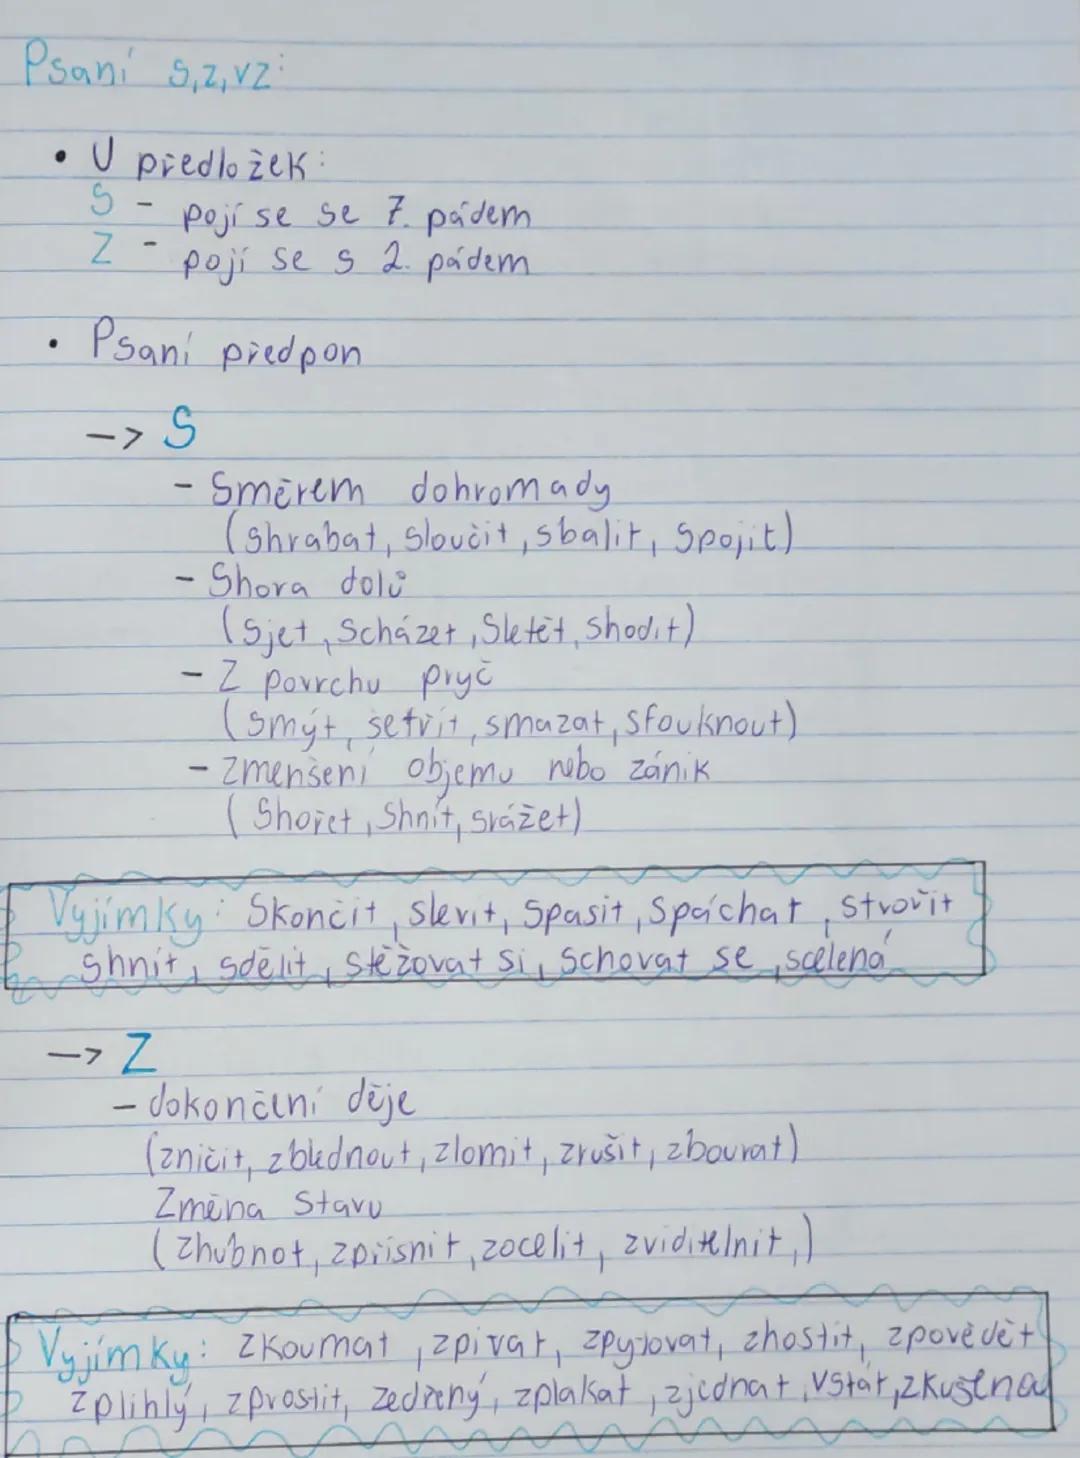 Psaní s,z,vz:
• U předložek:
S - pojí se se 7. pádem
Z - pojí se s 2. pádem
• Psaní předpon
-> S
- Směrem dohromady
(shrabat, sloučit, sbalit, spojit)
- Shora dolů
(Sjet, Scházet, Sletět, shodit)
- Z povrchu pryč
(smýt, setřít, smazat, sfouknout)
- Zmenšení objemu nebo zánik
(Shořet, Shnít, srážet)
Vyjímky: Skončit, slevit, Spasit, Spáchat, stvořit
shnít, sdělit, stěžovat si, schovat se, scelená
-> Z
- dokončení děje
(zničit, zblednout, zlomit, zrušit, zbourat)
Změna stavu
(Zhubnot, zpřísnit, zocelit, zviditelnit,)
Vyjímky: Zkoumat, zpívat, zpytovat, zhostit, zpovědět
Zplihlý, zprostit, zedřený, zplakat, zjednat, vstát, zkušená